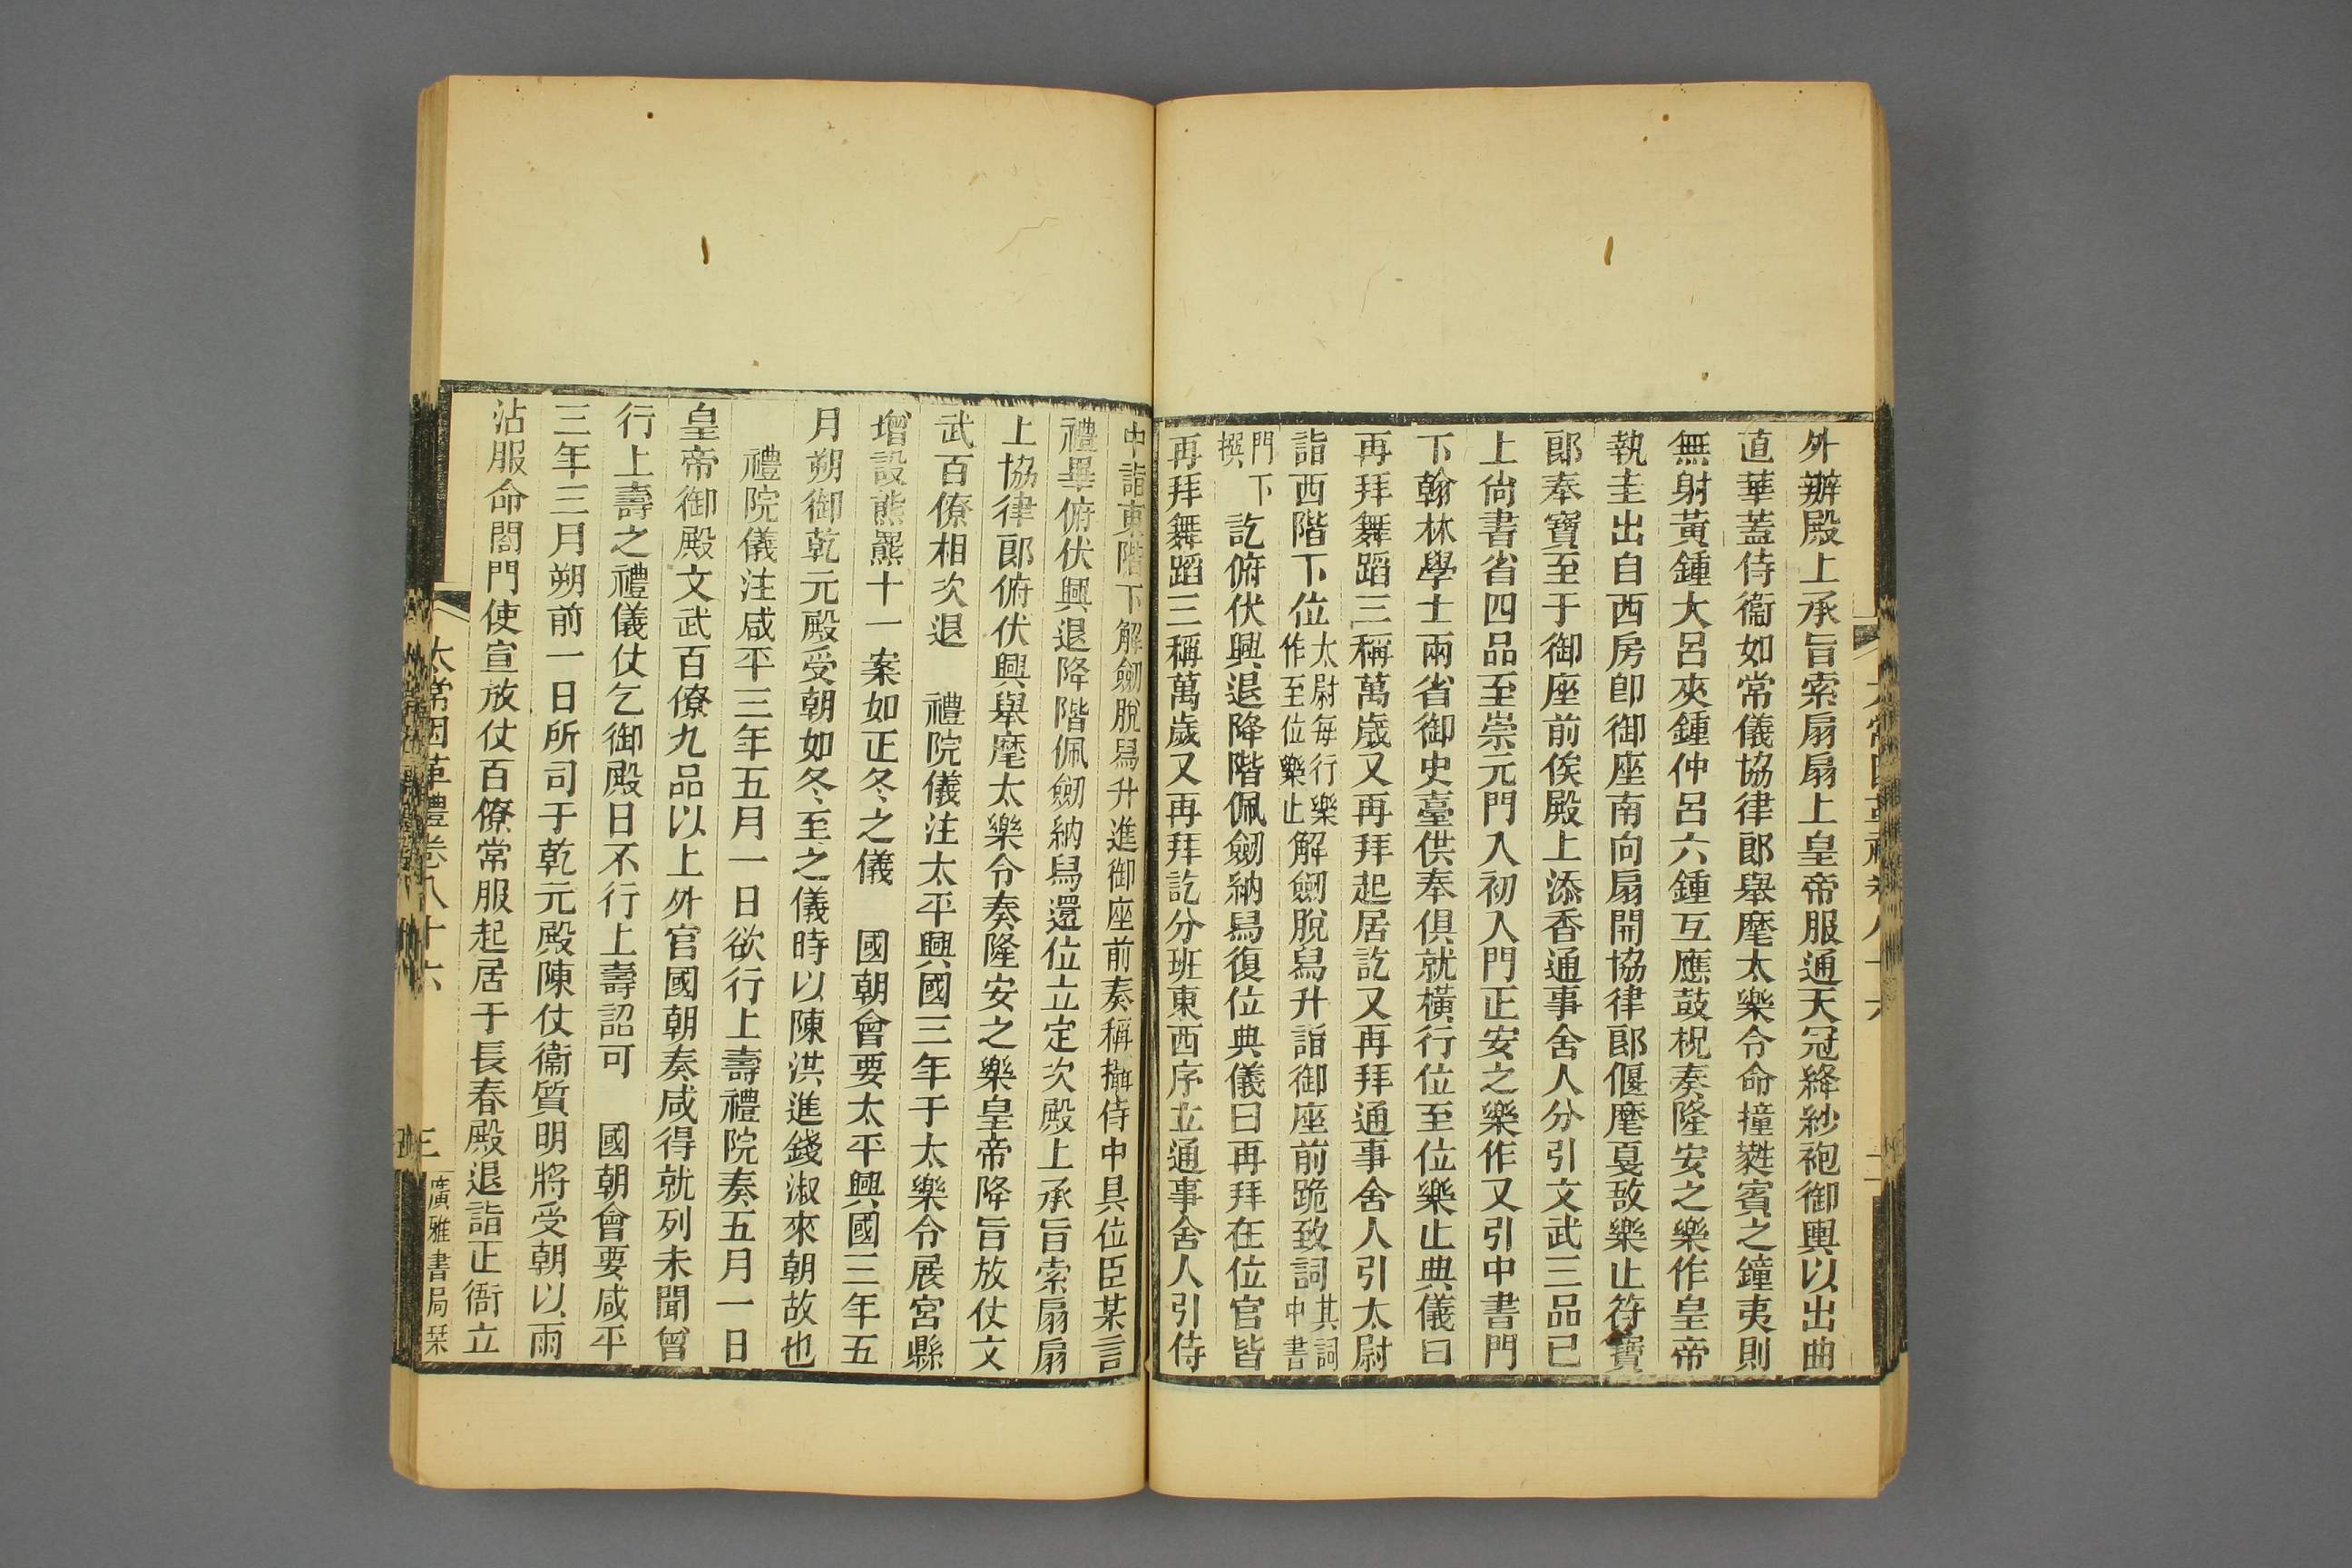 外辦殿上承旨索扇扇上皇帝服通天冠絳紗袍御輿以出曲
直華蓋侍衞如常儀協律郎舉麾太樂令命撞蕤賓之鐘夷則
無射黃鍾大呂夾鍾仲呂六鍾互應鼓柷奏隆安之樂作皇帝
執圭出自西房卽御座南向扇開協律郎偃麾戛敔樂止符寶
郎奉寶至于御座前俟殿上添香通事舍人分引文武三品已
上尙書省四品至崇元門入初入門正安之樂作又引中書門
下翰林學士兩省御史臺供奉俱就橫行位至位樂止典儀曰
再拜舞蹈三稱萬歲又再拜起居訖又再拜通事舍人引太尉
詣西階下位太尉每行樂作至位樂止解劒脫舄升詣御座前跪致詞其詞中書
門下撰訖俯伏興退降階佩劒納舄復位典儀曰再拜在位官皆
再拜舞蹈三稱萬歲又再拜訖分班東西序立通事舍人引侍
中詣東階下解劒脫舄升進御座前奏稱攝侍中具位臣某言
禮畢俯伏興退降階佩劒納舄還位立定次殿上承旨索扇扇
上協律郎俯伏興舉麾太樂令奏隆安之樂皇帝降旨放仗文
武百僚相次退　禮院儀注太平興國三年于太樂令展宮縣
增設熊羆十一案如正冬之儀　國朝會要太平興國三年五
月朔御乾元殿受朝如冬至之儀時以陳洪進錢淑來朝故也
禮院儀注咸平三年五月一日欲行上壽禮院奏五月一日
皇帝御殿文武百僚九品以上外官國朝奏咸得就列未聞曾
行上壽之禮儀仗乞御殿日不行上壽詔可　國朝會要咸平
三年三月朔前一日所司于乾元殿陳仗衞質明將受朝以雨
沾服命閤門使宣放仗百僚常服起居于長春殿退詣正衙立
太常因革禮卷八十六
三
廣雅書局栞